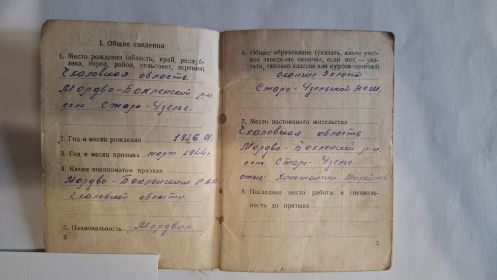 I. Общие сведения
1. Место рождения (область, край, респуб-
лика, город, район, сельсовет, деревня)
Чкаловская область
Мордво-Боклинский р-н
село Старо-Узели.
2. Год и месяц рождения 1926 01.
3. Год и месяц призыва март 1944 г.
4. Каким военкоматом призван
Мордво-Боклинским РВК
Чкаловской области.
5. Национальность Мордвин
2
6. Общее образование (указать, какое учеб-
ное заведение окончил, если нет, — ука-
зать, сколько классов или курсов окончил)
окончил
Старо-Узельской
7. Место постоянного жительства
Чкаловская область
Мордво-Боклинский р-н.
село Старо-Узели
отец: Константин
8. Последнее место работы и специаль-
ность до призыва
3